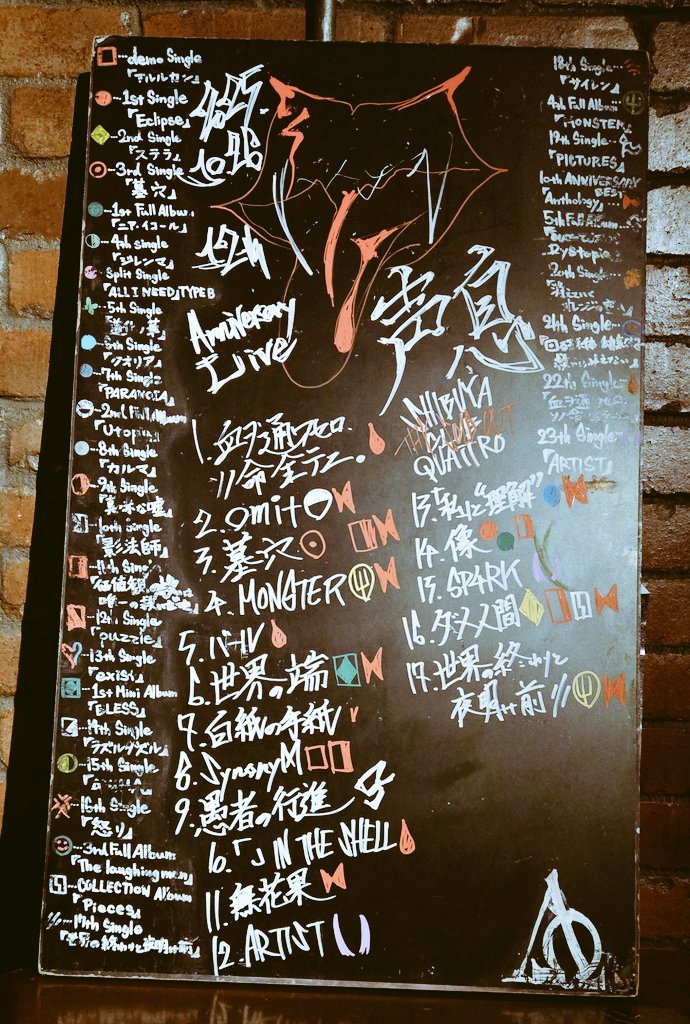 …demo Single
『デルルセン』
…1st Single
『Eclipse』
…2nd Single
『ステラ』
…3rd Single
『墓穴』
…1st Full Album
『ニア・イコール』
…4th single
『ジレンマ』
Split Single
『ALL I NEED』TYPE B
…5th Single
…6th Single
『クオリア』
…7th Single
『PARANOIA』
…2nd Full Album
『Utopia』
…8th Single
『カルマ』
…9th Single
『真冰の嘘』
…10th Single
『影法師』
…11th Single
…12th Single
『puzzle』
…13th Single
『exist』
…1st Mini Album
『BLESS』
…14th Single
『ラズルダズル』
…15th Single
…16th Single
『怒り』
…3rd Full Album
『The laughing man』
…COLLECTION Album
『Pieces』
…17th Single
『世界の終わりと夜明け前』
2025.
10.26
12th
Anniversary
Live
声息
SHIBUYA
CLUB
QUATTRO
1.血ヲ通ワセロ、
〃命全テニ。
2.Omit
3.墓穴
4.MONSTER
5.バベル
6.世界の端
7.白紙の手紙
8.SynsnyM
9.愚者の行進
10.「」IN THE SHELL
11.無花果
12.ARTIST
13.「私と“理解”
14.像
15.SPARK
16.ダメ人間
17.世界の終わりと
夜明け前〃
18th Single…
『サイレン』
4th Full Album…
『MONSTER』
19th Single…
『PICTURES』
10th ANNIVERSARY
BEST
『Anthology』
5th Full Album…
Dystopia』
20th Single…
21th Single…
22th Single…
23th Single…
『ARTIST』